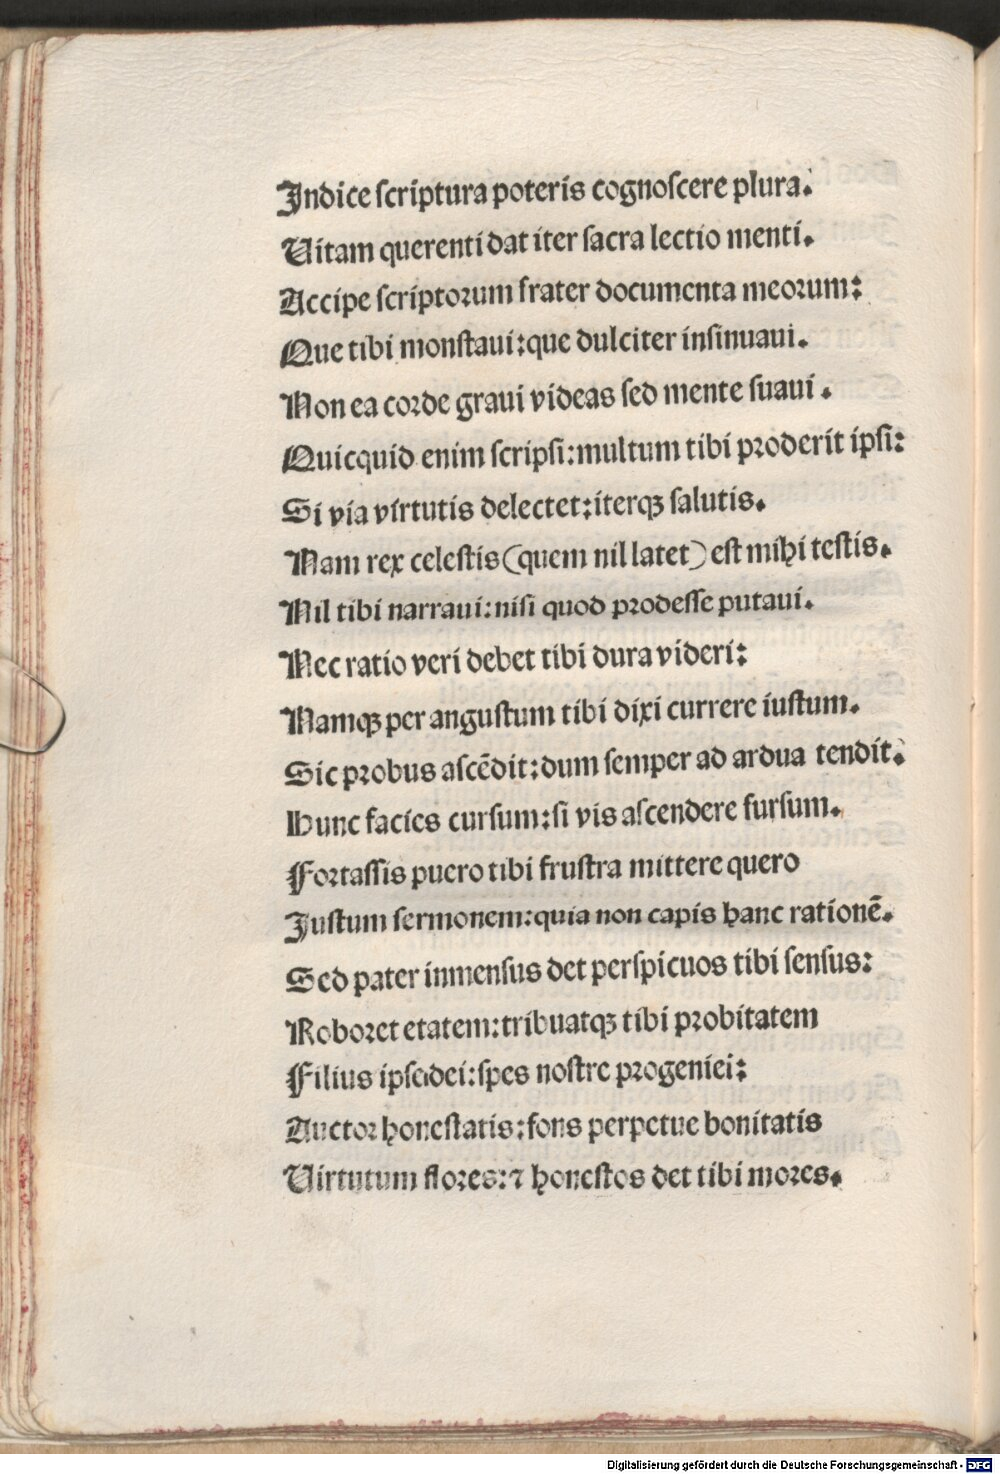 Indice scriptura poteris cognoscere plura.
Uitam querenti dat iter sacra lectio menti.
Accipe scriptorum frater documenta meorum:
Que tibi monstaui:que dulciter insinuaui.
Non ea corde graui videas sed mente suaui.
Quicquid enim scripsi:multum tibi proderit ipsi:
Si via virtutis delectet:iterqꝫ salutis.
Nam rex celestis(quem nil latet)est mihi testis.
Nil tibi narraui:nisi quod prodesse putaui.
Nec ratio veri debet tibi dura videri:
Namqꝫ per angustum tibi dixi currere iustum.
Sic probus ascēdit:dum semper ad ardua tendit.
Hunc facies cursum:si vis ascendere sursum.
Fortassis puero tibi frustra mittere quero
Justum sermonem:quia non capis hanc rationē.
Sed pater inmensus det perspicuos tibi sensus:
Roboret etatem:tribuatqꝫ tibi probitatem
Filius ipsedei:spes nostre progeniei:
Auctor honestatis:fons perpetue bonitatis
Uirtutum flores:⁊ honestos det tibi mores.
Digitalisierung gefördert durch die Deutsche Forschungsgemeinschaft - DFG